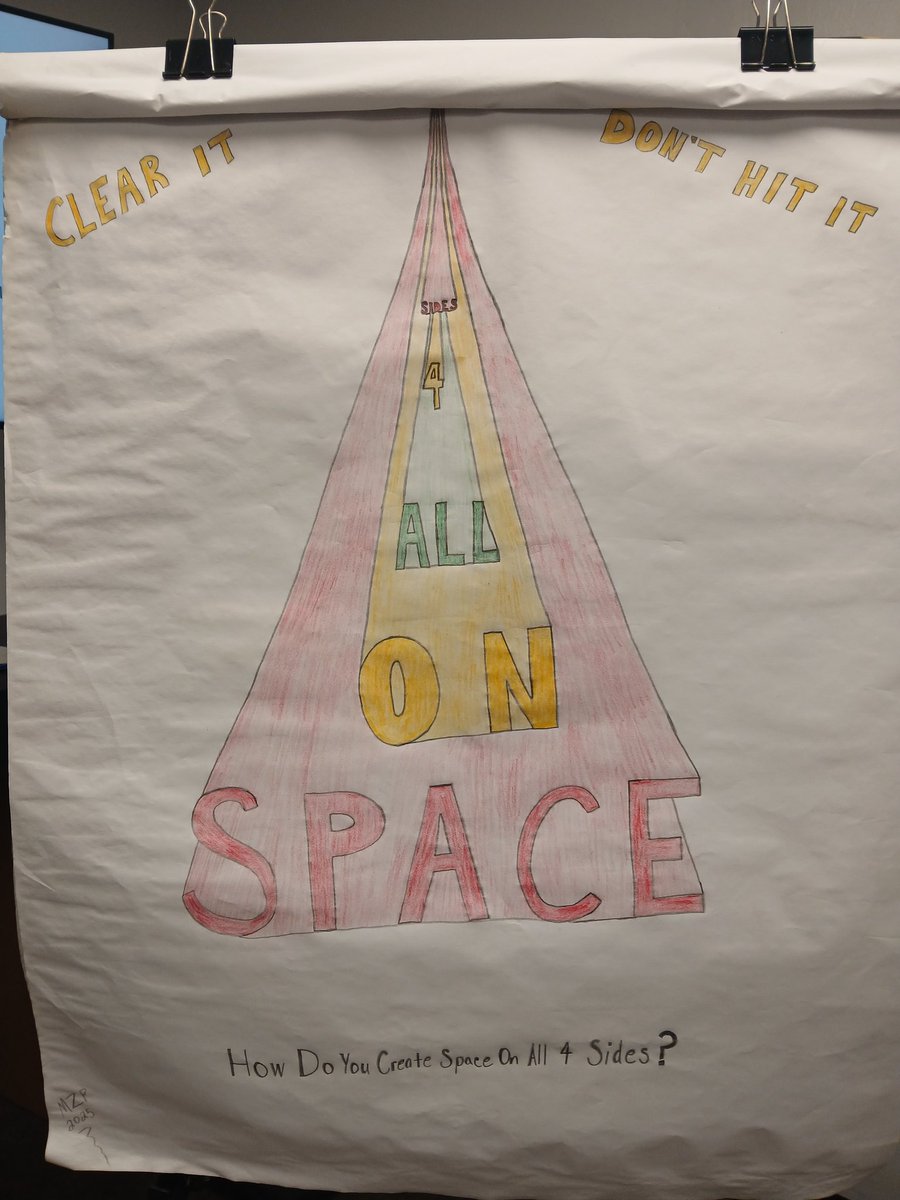 CLEAR IT
DON'T HIT IT
SIDES
4
ALL
ON
SPACE
How Do You Create Space On All 4 Sides?
MZP
2025